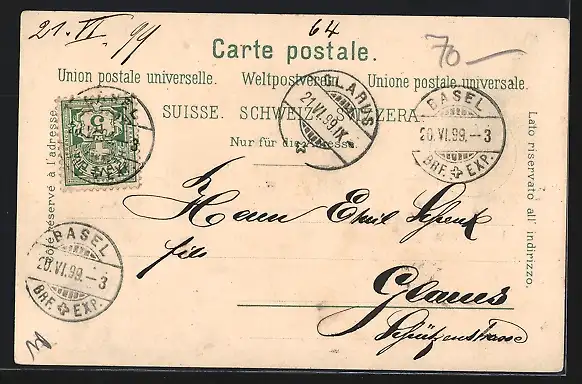 21. VI. 99
64
70 —
Carte postale.
Union postale universelle. Weltpostverein. Unione postale universale.
SUISSE. SCHWEIZ. SVIZZERA.
Nur für die Adresse.
Côté réservé à l'adresse.
Lato riservato all' indirizzo.
GLARUS
21.VI.99.IX
BASEL
20.VI.99.–3
BRF. EXP.
BASEL
20.VI.99.–3
BRF. EXP.
5
Herrn Emil Schenk
fils
Glarus
Schützenstrasse